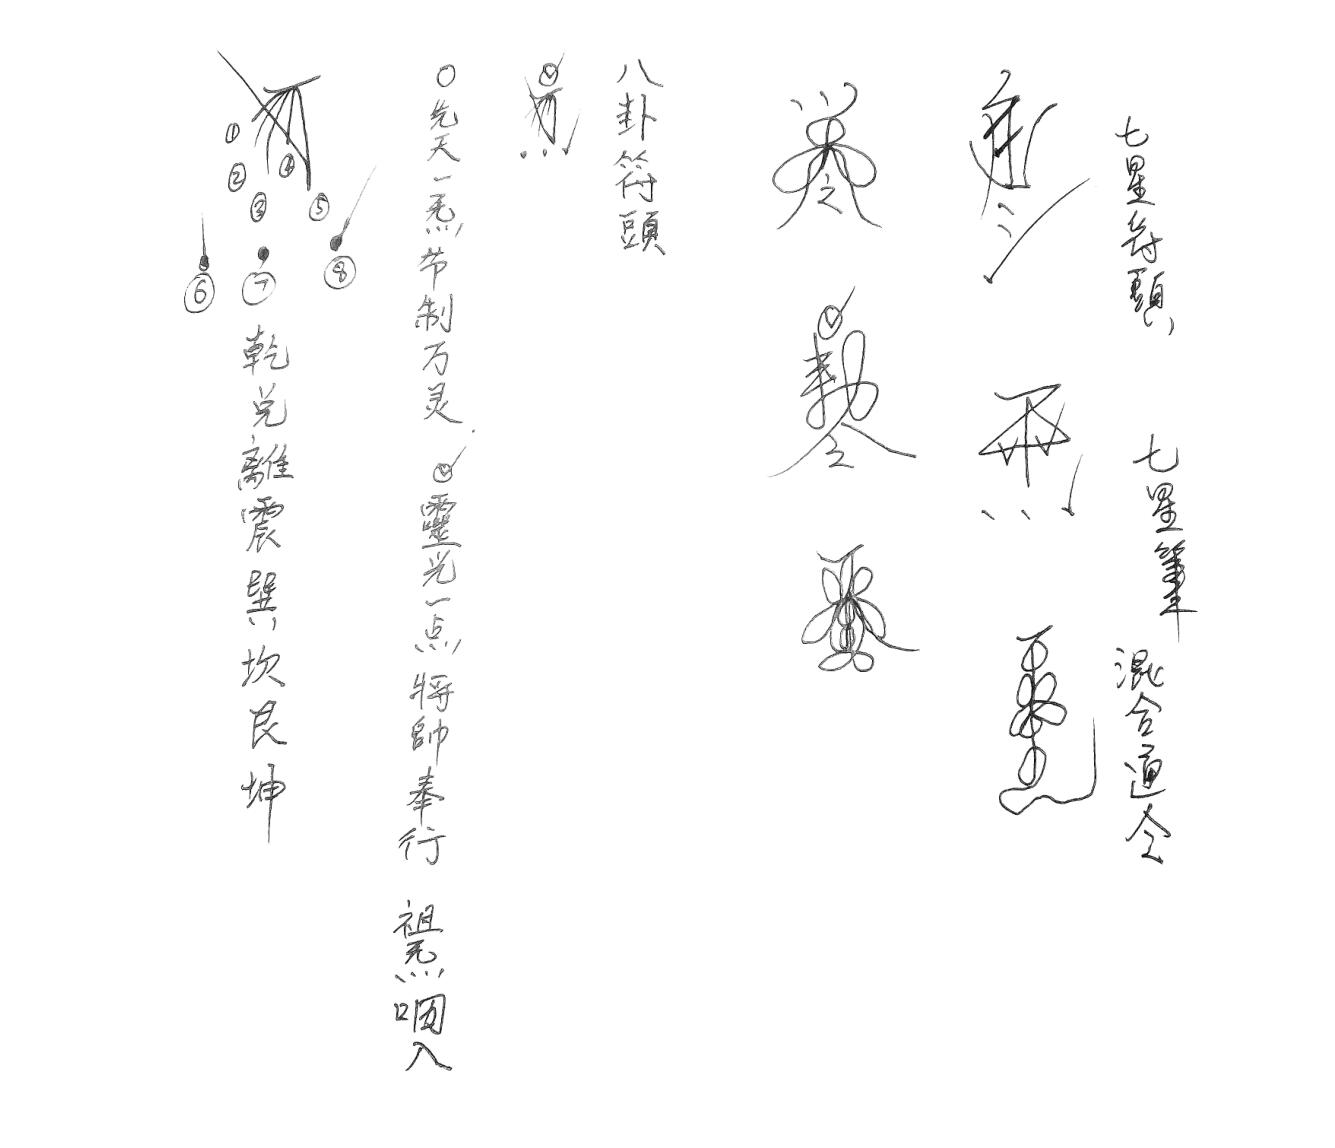 七星符頭
七星筆
混合道令
八卦符頭
〇先天一炁节制万灵
靈光一点將帥奉行
祖炁咽入
①
②
③
④
⑤
⑥
⑦
⑧
乾兑離震巽坎艮坤